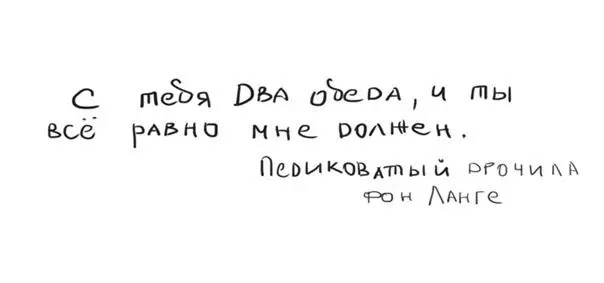 С тебя два обеда, и ты
всё равно мне должен.
Педиковатый дрочила
фон Ланге